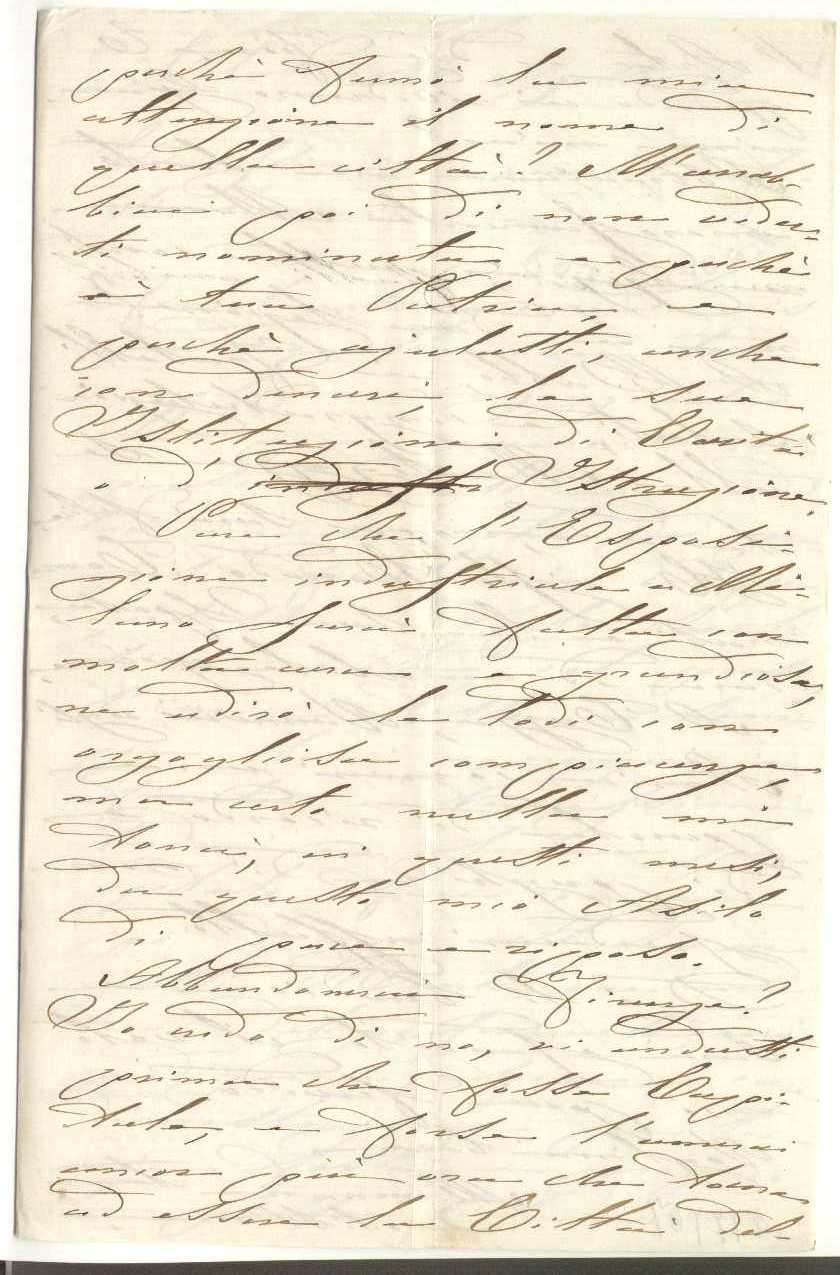 perchè fermò la mia
attenzione il nome di
quella città? M'arrab-
biai poi di non veder-
ti nominata e perchè
è tua Patria, e
perchè ajutasti, anche
con denari, le sue
Istituzioni di Carità
o d' industria Istruzione.
Pare che l'Esposi-
zione industriale a Mi-
lano sarà fatta con
molta cura e grandiosa,
ne udirò le lodi con
orgogliosa compiacenza,
ma certo nulla mi
torrà, in questi mesi,
da questo mio Asilo
di pace e riposo.
Abbandonerai Firenze?
Io credo di no, vi andasti
prima che fosse Capi-
tale, e forse l'amerai
ancor più ora che torna
ad essere la Città del-